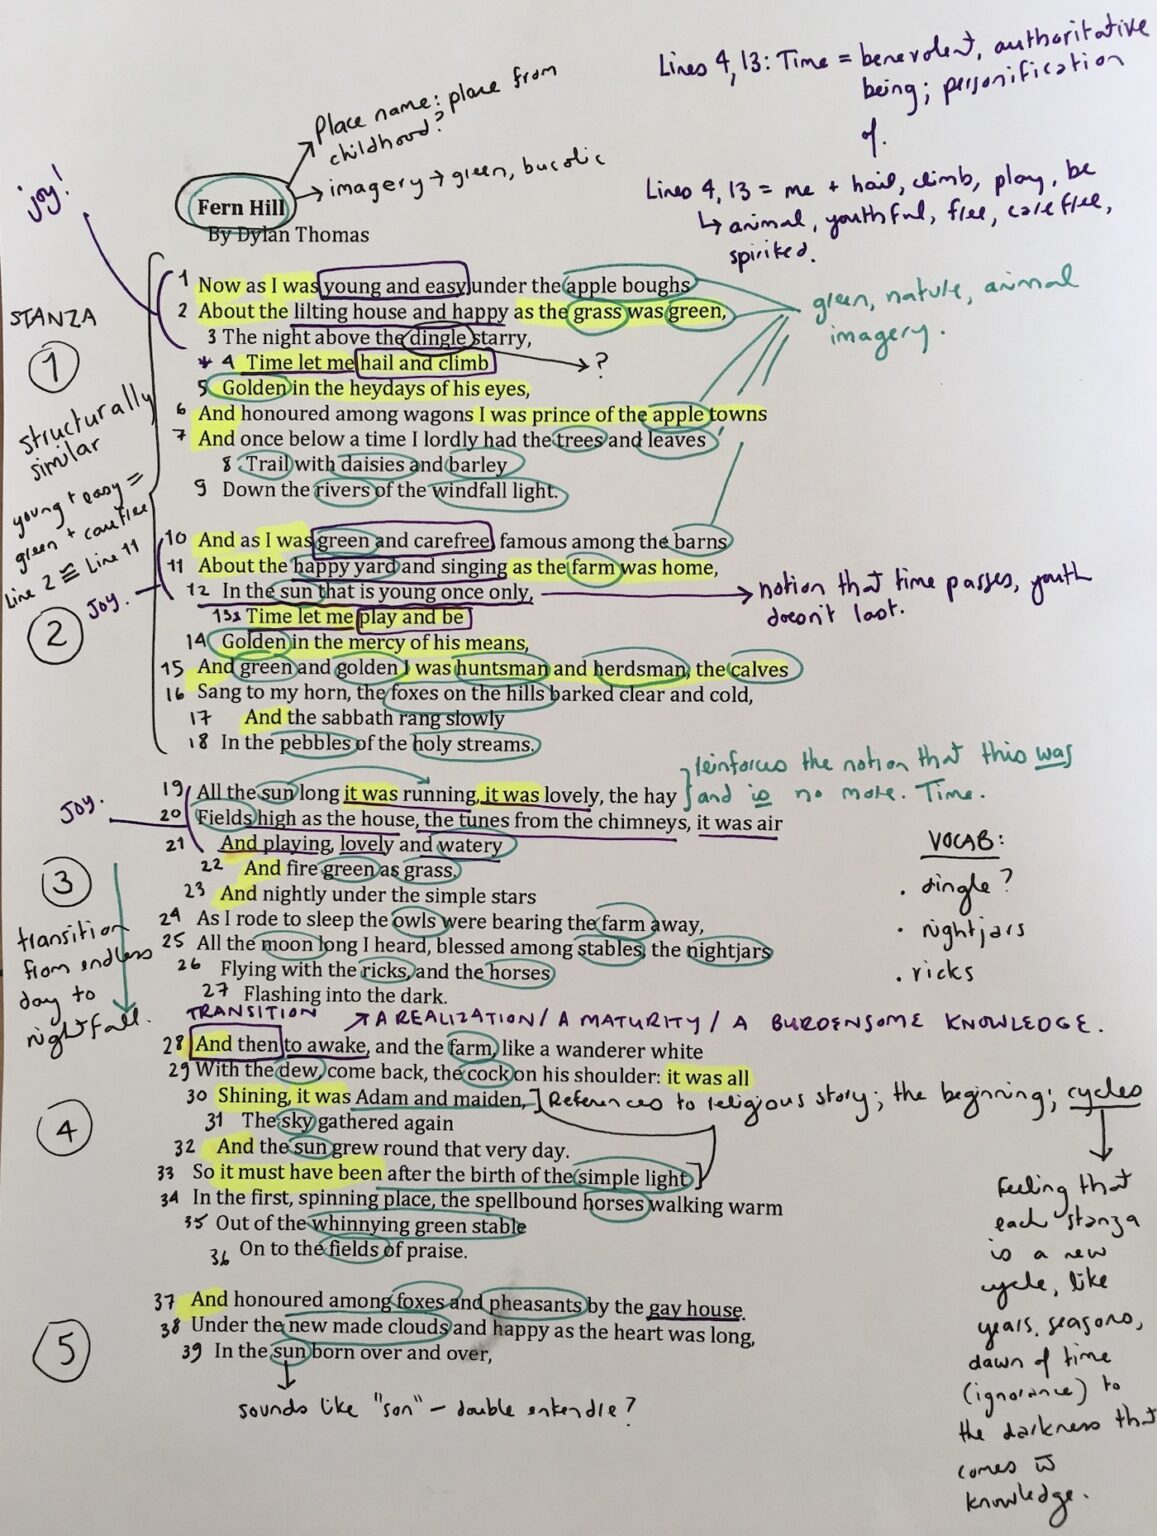 Lines 4, 13: Time = benevolent, authoritative
being; personification
of.
Place name: place from
childhood?
imagery → green, bucolic
Lines 4, 13 = me + hail, climb, play, be
↳ animal, youthful, free, carefree,
spirited.
joy!
Fern Hill
By Dylan Thomas
green, nature, animal
imagery.
STANZA
1
structurally
similar
young + easy =
green + carefree
Line 2 ≅ Line 11
1 Now as I was young and easy under the apple boughs
2 About the lilting house and happy as the grass was green,
3 The night above the dingle starry,
* 4 Time let me hail and climb
?
5 Golden in the heydays of his eyes,
6 And honoured among wagons I was prince of the apple towns
7 And once below a time I lordly had the trees and leaves
8 Trail with daisies and barley
9 Down the rivers of the windfall light.
joy.
2
10 And as I was green and carefree, famous among the barns
11 About the happy yard and singing as the farm was home,
12 In the sun that is young once only,
notion that time passes, youth
doesn't last.
13 Time let me play and be
14 Golden in the mercy of his means,
15 And green and golden I was huntsman and herdsman, the calves
16 Sang to my horn, the foxes on the hills barked clear and cold,
17 And the sabbath rang slowly
18 In the pebbles of the holy streams.
reinforces the notion that this was
and is no more. Time.
joy.
3
transition
from endless
day to
nightfall.
19 All the sun long it was running, it was lovely, the hay
20 Fields high as the house, the tunes from the chimneys, it was air
21 And playing, lovely and watery
22 And fire green as grass.
23 And nightly under the simple stars
24 As I rode to sleep the owls were bearing the farm away,
25 All the moon long I heard, blessed among stables, the nightjars
26 Flying with the ricks, and the horses
27 Flashing into the dark.
VOCAB:
. dingle?
. nightjars
. ricks
TRANSITION ↗ A REALIZATION / A MATURITY / A BURDENSOME KNOWLEDGE.
4
28 And then to awake, and the farm, like a wanderer white
29 With the dew, come back, the cock on his shoulder: it was all
30 Shining, it was Adam and maiden,
References to religious story; the beginning; cycles
31 The sky gathered again
32 And the sun grew round that very day.
33 So it must have been after the birth of the simple light
34 In the first, spinning place, the spellbound horses walking warm
35 Out of the whinnying green stable
36 On to the fields of praise.
Feeling that
each stanza
is a new
cycle, like
years, seasons,
dawn of time
(ignorance) to
the darkness that
comes w
knowledge.
5
37 And honoured among foxes and pheasants by the gay house
38 Under the new made clouds and happy as the heart was long,
39 In the sun born over and over,
sounds like "son" – double entendre?